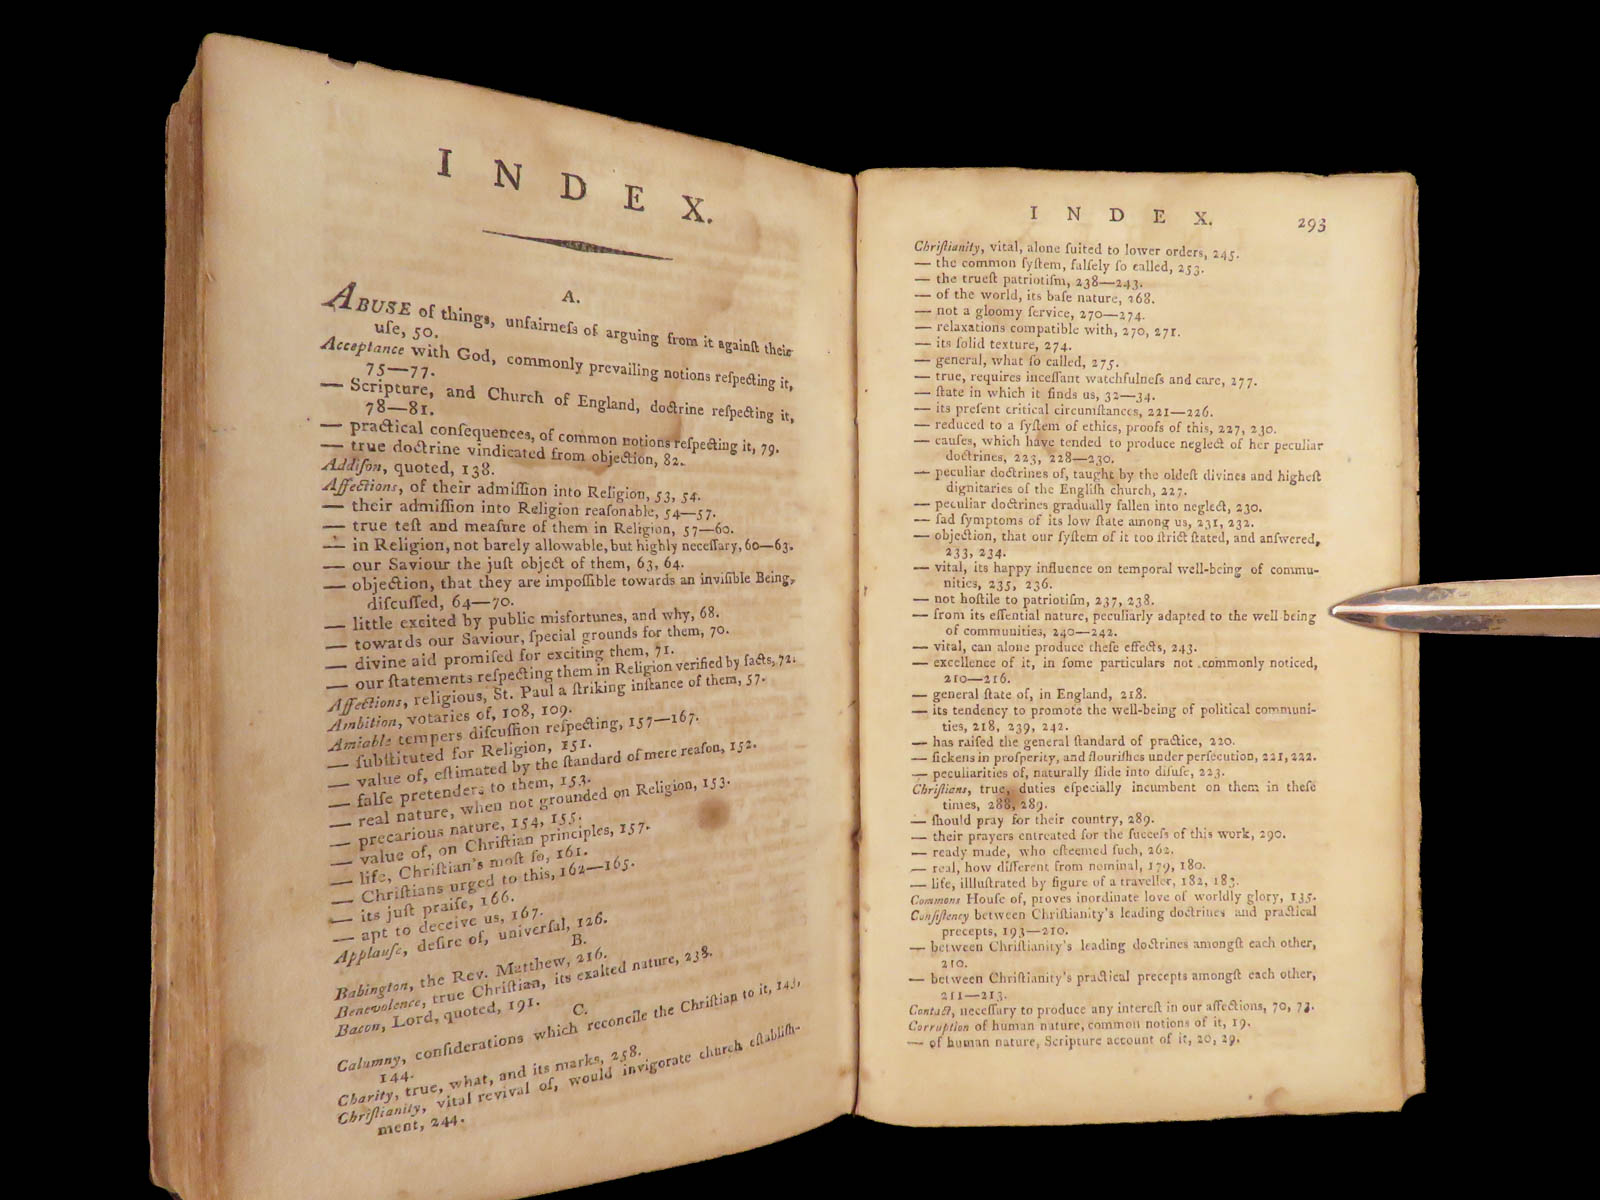 INDEX.
A.
ABUSE of things, unfairneſs of arguing from it againſt their
uſe, 50.
Acceptance with God, commonly prevailing notions reſpecting it,
75—77.
— Scripture, and Church of England, doctrine reſpecting it,
78—81.
— practical conſequences, of common notions reſpecting it, 79.
— true doctrine vindicated from objection, 82.
Addiſon, quoted, 138.
Affections, of their admiſſion into Religion, 53, 54.
— their admiſſion into Religion reaſonable, 54—57.
— true teſt and meaſure of them in Religion, 57—60.
— in Religion, not barely allowable, but highly neceſſary, 60—63.
— our Saviour the juſt object of them, 63, 64.
— objection, that they are impoſſible towards an inviſible Being,
diſcuſſed, 64—70.
— little excited by public misfortunes, and why, 68.
— towards our Saviour, ſpecial grounds for them, 70.
— divine aid promiſed for exciting them, 71.
— our ſtatements reſpecting them in Religion verified by facts, 72.
Affections, religious, St. Paul a ſtriking inſtance of them, 57.
Ambition, votaries of, 108, 109.
Amiable tempers diſcuſſion reſpecting, 157—167.
— ſubſtituted for Religion, 151.
— value of, eſtimated by the ſtandard of mere reaſon, 152.
— falſe pretenders to them, 153.
— real nature, when not grounded on Religion, 153.
— precarious nature, 154, 155.
— value of, on Chriſtian principles, 157.
— life, Chriſtian's moſt ſo, 161.
— Chriſtians urged to this, 162—165.
— its juſt praiſe, 166.
— apt to deceive us, 167.
Applauſe, deſire of, univerſal, 126.
B.
Babington, the Rev. Matthew, 216.
Benevolence, true Chriſtian, its exalted nature, 238.
Bacon, Lord, quoted, 191.
C.
Calumny, conſiderations which reconcile the Chriſtian to it, 143,
144.
Charity, true, what, and its marks, 258.
Chriſtianity, vital revival of, would invigorate church eſtabliſh-
ment, 244.
INDEX. 293
Chriſtianity, vital, alone ſuited to lower orders, 245.
— the common ſyſtem, falſely ſo called, 253.
— the trueſt patriotiſm, 238—243.
— of the world, its baſe nature, 268.
— not a gloomy ſervice, 270—274.
— relaxations compatible with, 270, 271.
— its ſolid texture, 274.
— general, what ſo called, 275.
— true, requires inceſſant watchfulneſs and care, 277.
— ſtate in which it finds us, 32—34.
— its preſent critical circumſtances, 221—226.
— reduced to a ſyſtem of ethics, proofs of this, 227, 230.
— cauſes, which have tended to produce neglect of her peculiar
doctrines, 223, 228—230.
— peculiar doctrines of, taught by the oldeſt divines and higheſt
dignitaries of the Engliſh church, 227.
— peculiar doctrines gradually fallen into neglect, 230.
— ſad ſymptoms of its low ſtate among us, 231, 232.
— objection, that our ſyſtem of it too ſtrict ſtated, and anſwered,
233, 234.
— vital, its happy influence on temporal well-being of commu-
nities, 235, 236.
— not hoſtile to patriotiſm, 237, 238.
— from its eſſential nature, peculiarly adapted to the well being
of communities, 240—242.
— vital, can alone produce theſe effects, 243.
— excellence of it, in ſome particulars not commonly noticed,
210—216.
— general ſtate of, in England, 218.
— its tendency to promote the well-being of political communi-
ties, 218, 239, 242.
— has raiſed the general ſtandard of practice, 220.
— ſickens in proſperity, and flouriſhes under perſecution, 221, 222.
— peculiarities of, naturally ſlide into diſuſe, 223.
Chriſtians, true, duties eſpecially incumbent on them in theſe
times, 288, 289.
— ſhould pray for their country, 289.
— their prayers entreated for the ſucceſs of this work, 290.
— ready made, who eſteemed ſuch, 262.
— real, how different from nominal, 179, 180.
— life, illluſtrated by figure of a traveller, 182, 183.
Commons Houſe of, proves inordinate love of worldly glory, 135.
Conſiſtency between Chriſtianity's leading doctrines and practical
precepts, 193—210.
— between Chriſtianity's leading doctrines amongſt each other,
210.
— between Chriſtianity's practical precepts amongſt each other,
211—213.
Contact, neceſſary to produce any intereſt in our affections, 70, 73.
Corruption of human nature, common notions of it, 19.
— of human nature, Scripture account of it, 20, 29.